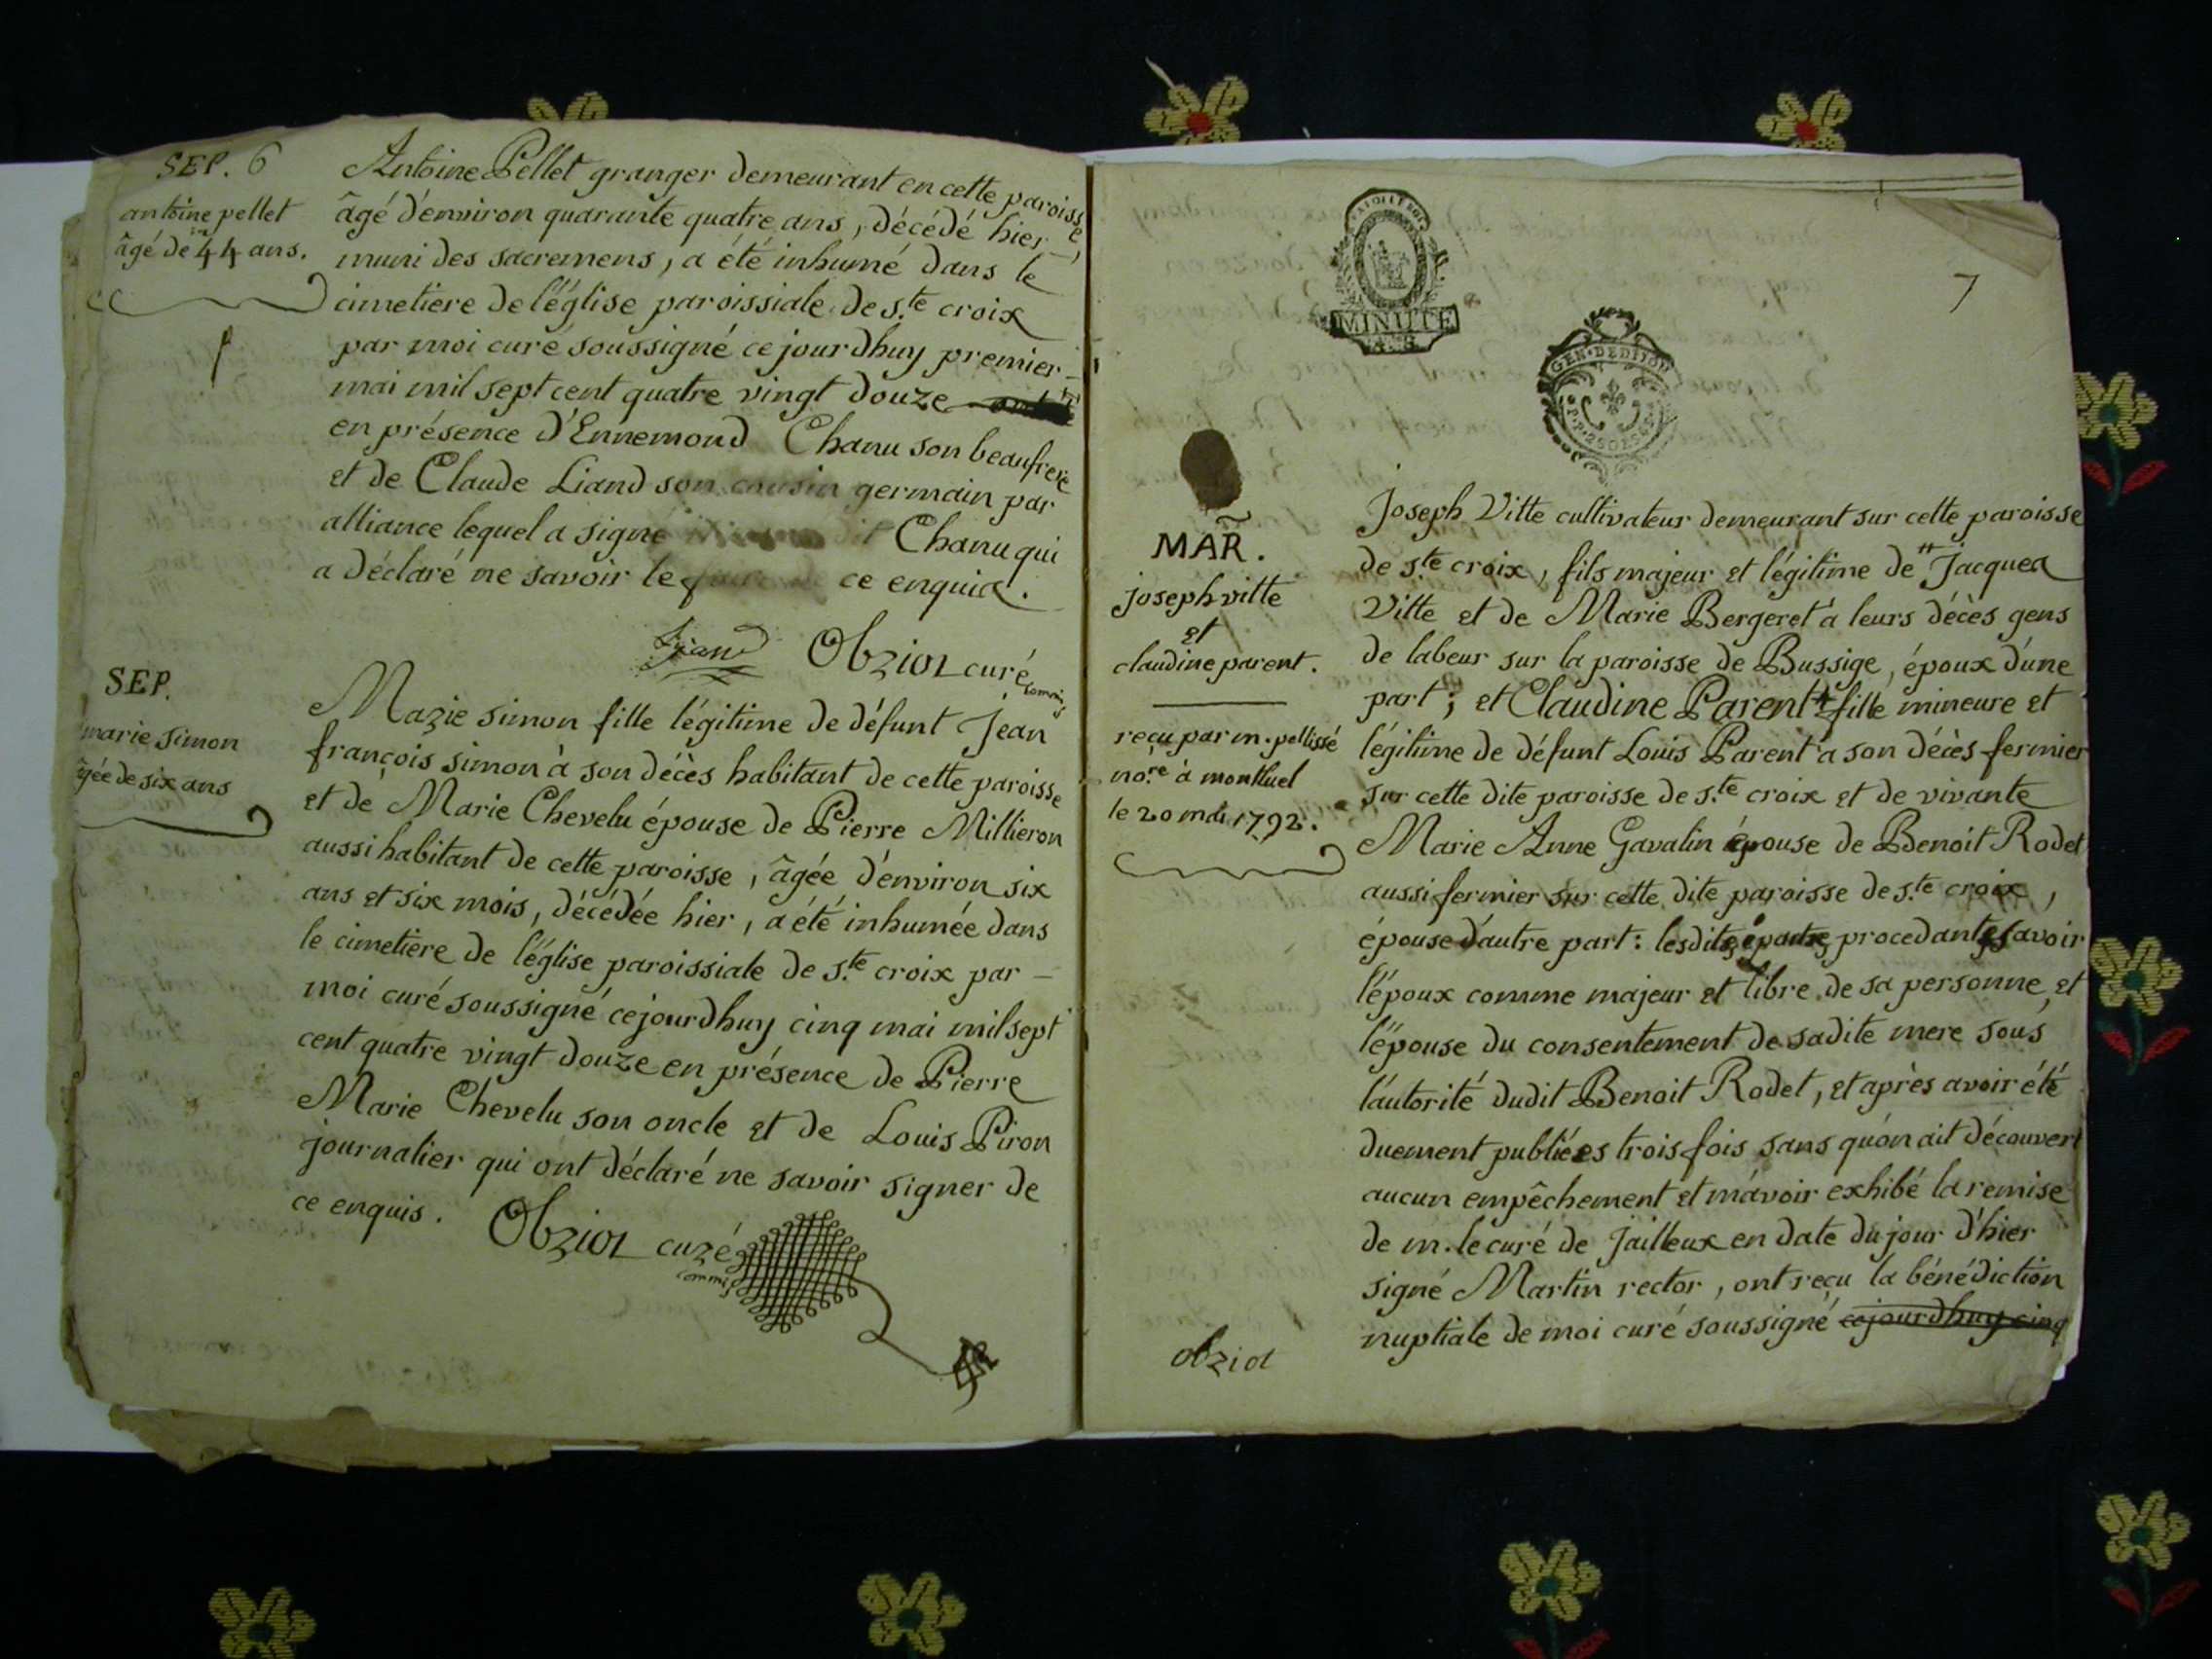 SEP. 6
antoine pellet
âgé de 44 ans.
Antoine Pellet granger demeurant en cette paroisse,
âgé d'environ quarante quatre ans, décédé hier
muni des sacremens, a été inhumé dans le
cimetiere de l'église paroissiale de s.te croix
par moi curé soussigné cejourdhuy premier
mai mil sept cent quatre vingt douze
en présence d'Ennemond Chanu son beaufrere
et de Claude Liand son cousin germain par
alliance lequel a signé Chanu qui
a déclaré ne savoir le ce enquis.
Liand Obziol curé commis
SEP.
marie simon
âgée de six ans
Marie simon fille légitime de défunt Jean
françois simon à son décès habitant de cette paroisse
et de Marie Chevelu épouse de Pierre Millieron
aussi habitant de cette paroisse, âgée d'environ six
ans et six mois, décédée hier, a été inhumée dans
le cimetiere de l'église paroissiale de s.te croix par —
moi curé soussigné cejourdhuy cinq mai mil sept
cent quatre vingt douze en présence de Pierre
Marie Chevelu son oncle et de Louis Piron
journalier qui ont déclaré ne savoir signer de
ce enquis. Obziol curé
commis
7
MINUTTE
GEN. DE DIJON
MAR.
joseph vitte
et
claudine parent.
reçu par m. pellissé
no.re à montluel
le 20 mai 1792.
Joseph Vitte cultivateur demeurant sur cette paroisse
de s.te croix, fils majeur et légitime de Jacques
Vitte et de Marie Bergeret à leurs décès gens
de labeur sur la paroisse de Bussige, époux d'une
part; et Claudine Parent fille mineure et
légitime de défunt Louis Parent à son décès fermier
sur cette dite paroisse de s.te croix et de vivante
Marie Anne Gavalin épouse de Benoit Rodet
aussi fermier sur cette dite paroisse de s.te croix,
épouse d'autre part: lesdits procedants savoir
l'époux comme majeur et libre de sa personne, et
l'épouse du consentement de sadite mere sous
l'autorité dudit Benoit Rodet, et après avoir été
duement publiées trois fois sans qu'on ait découvert
aucun empêchement et m'avoir exhibé la remise
de m. le curé de Jailleux en date du jour d'hier
signé Martin rector, ont reçu la bénédiction
nuptiale de moi curé soussigné cejourdhuy cinq
obziol